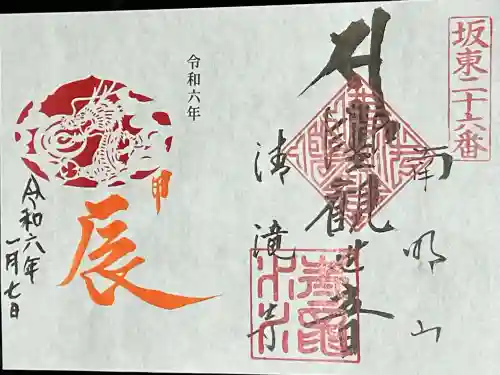 坂東二十六番
南明山
聖観世音
清滝寺
令和六年
甲
辰
令和六年
一月七日